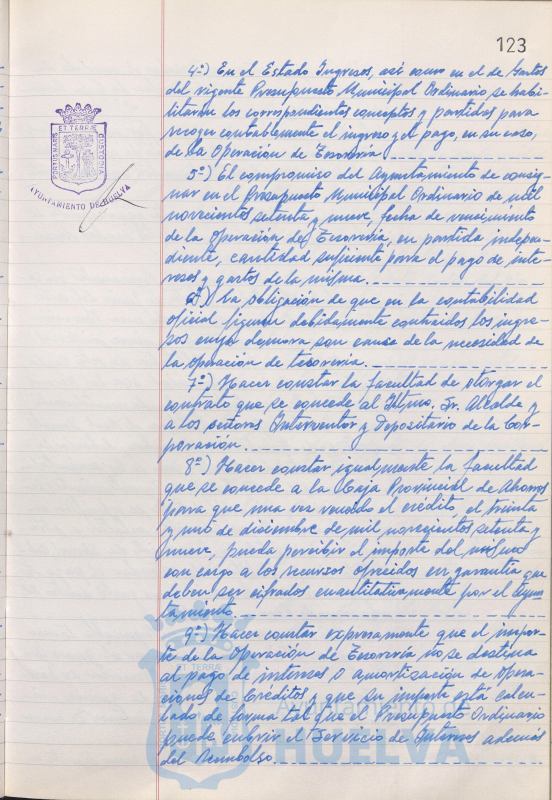 123
PORTUS MARIS
ET TERRÆ
CUSTODIA
AYUNTAMIENTO DE HUELVA
4º) En el Estado Ingresos, así como en el de Gastos
del vigente Presupuesto Municipal Ordinario se habi-
litarán los correspondientes conceptos y partidas para
recoger contablemente el ingreso y el pago, en su caso,
de la Operación de Tesorería.
5º) El compromiso del Ayuntamiento de consig-
nar en el Presupuesto Municipal Ordinario de mil
novecientos setenta y nueve, fecha de vencimiento
de la Operación de Tesorería, en partida indepen-
diente, cantidad suficiente para el pago de inte-
reses y gastos de la misma.
6º) La obligación de que en la contabilidad
oficial figuren debidamente contraidos los ingre-
sos cuya demora son causa de la necesidad de
la operación de tesorería.
7º) Hacer constar la facultad de otorgar el
contrato que se concede al Iltmo. Sr. Alcalde y
a los señores Interventor y Depositario de la Cor-
poración.
8º) Hacer constar igualmente la facultad
que se concede a la Caja Provincial de Ahorros
para que una vez vencido el crédito, el treinta
y uno de diciembre de mil novecientos setenta y
nueve, pueda percibir el importe del mismo
con cargo a los recursos ofrecidos en garantía que
deben ser cifrados cuantitativamente por el Ayun-
tamiento.
9º) Hacer constar expresamente que el impor-
te de la Operación de Tesorería no se destina
al pago de intereses o amortización de Opera-
ciones de Créditos y que su importe está calcu-
lado de forma tal que el Presupuesto Ordinario
puede cubrir el Servicio de Intereses además
del Reembolso.
ET TERRÆ
Ayuntamiento de
HUELVA